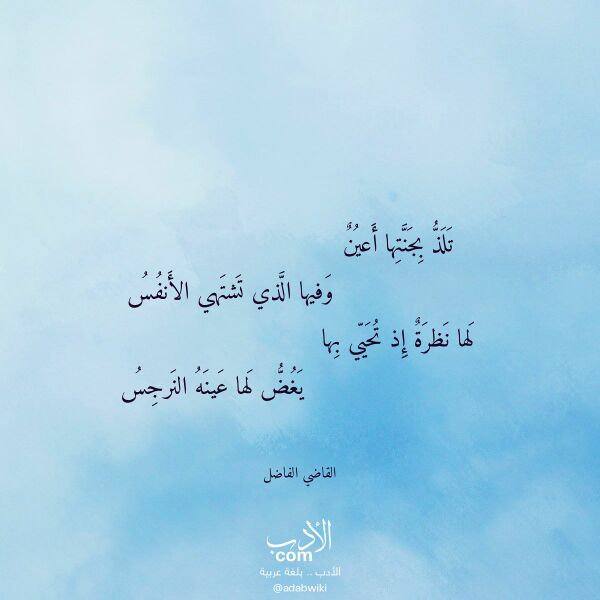 تَلَذُّ بِجَنَّتِها أَعيُنٌ
وَفيها الَّذي تَشتَهي الأَنفُسُ
لَها نَظرَةٌ إِذ تُحَيّي بِها
يَغُضُّ لَها عَينَهُ النَرجِسُ
القاضي الفاضل
الأدب
com
الأدب .. بلغة عربية
@adabwiki